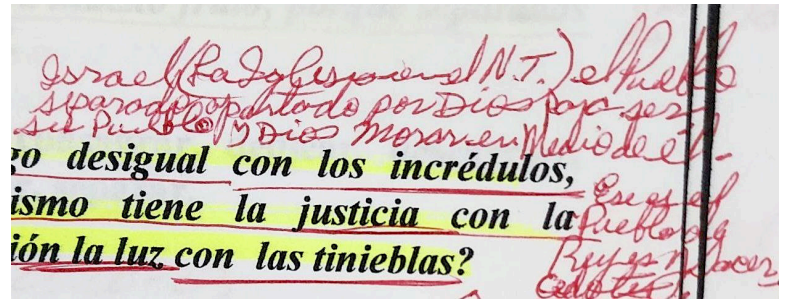 Israel (La Iglesia en el N.T.) el Pueblo
separado, apartado por Dios para ser
su Pueblo y Dios morar en Medio de él.
go desigual con los incrédulos,
ismo tiene la justicia con la
ión la luz con las tinieblas?
Ese es el
Pueblo de
Reyes y Sacer
dotes.